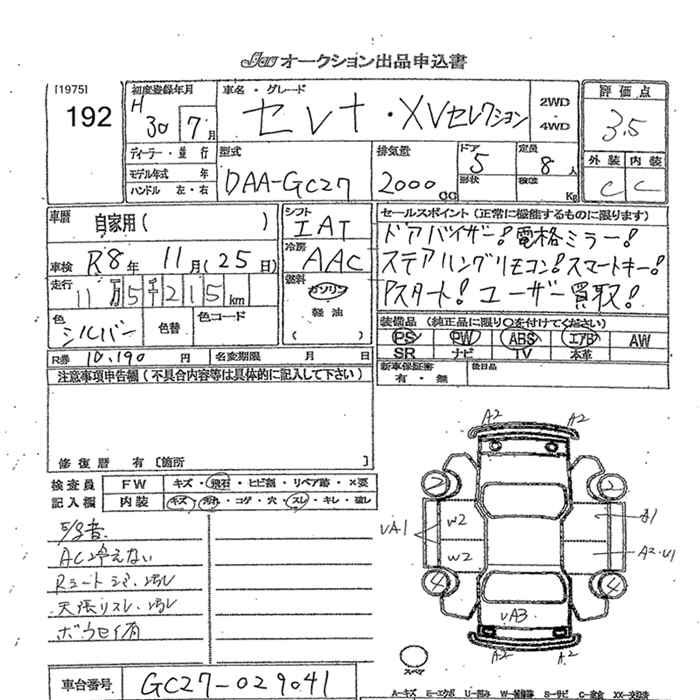 オークション出品申込書
[1975]
192
初度登録年月
H 30 7 月
車名・グレード
セレナ・XVセレクション
2WD
4WD
評価点
3.5
外装 内装
C C
ディーラー・並行
モデル年式 年
ハンドル 左・右
型式
DAA-GC27
排気量
2000 CC
ドア
5
形状
定員
8 人
積載
Kg
車歴
自家用 ( )
シフト
IAT
冷房
AAC
燃料
ガソリン
軽油
( )
車検 R8 年 11 月 (25 日)
走行
11 万 5 千 2 1 5 km
色
シルバー
色替
色コード
R券 10,190 円
名変期限 月 日
セールスポイント (正常に機能するものに限ります)
ドアバイザー! 電格ミラー!
ステアリングリモコン! スマートキー!
Pスタート! ユーザー買取!
装備品 (純正品に限り○を付けてください)
PS PW ABS エアB AW
SR ナビ TV 本革
新車保証書
有・無
後日品
注意事項申告欄 (不具合内容等は具体的に記入して下さい)
修復歴 有 [箇所 ]
検査員
記入欄
FW キズ・飛石・ヒビ割・リペア跡・×要
内装 キズ・汚れ・コゲ・穴・スレ・キレ・破レ
AC冷えない
Rシートシミ・汚レ
天張リスレ・汚レ
ボウセイ有
A2 A2
2 2
UA1 W2 A1
W2 A2・U1
4 4
UA3
A2 A2
スペア
車台番号 GC27-029041
A=キズ E=エクボ U=凹み W=補修跡 S=サビ C=腐食 XX=交換済